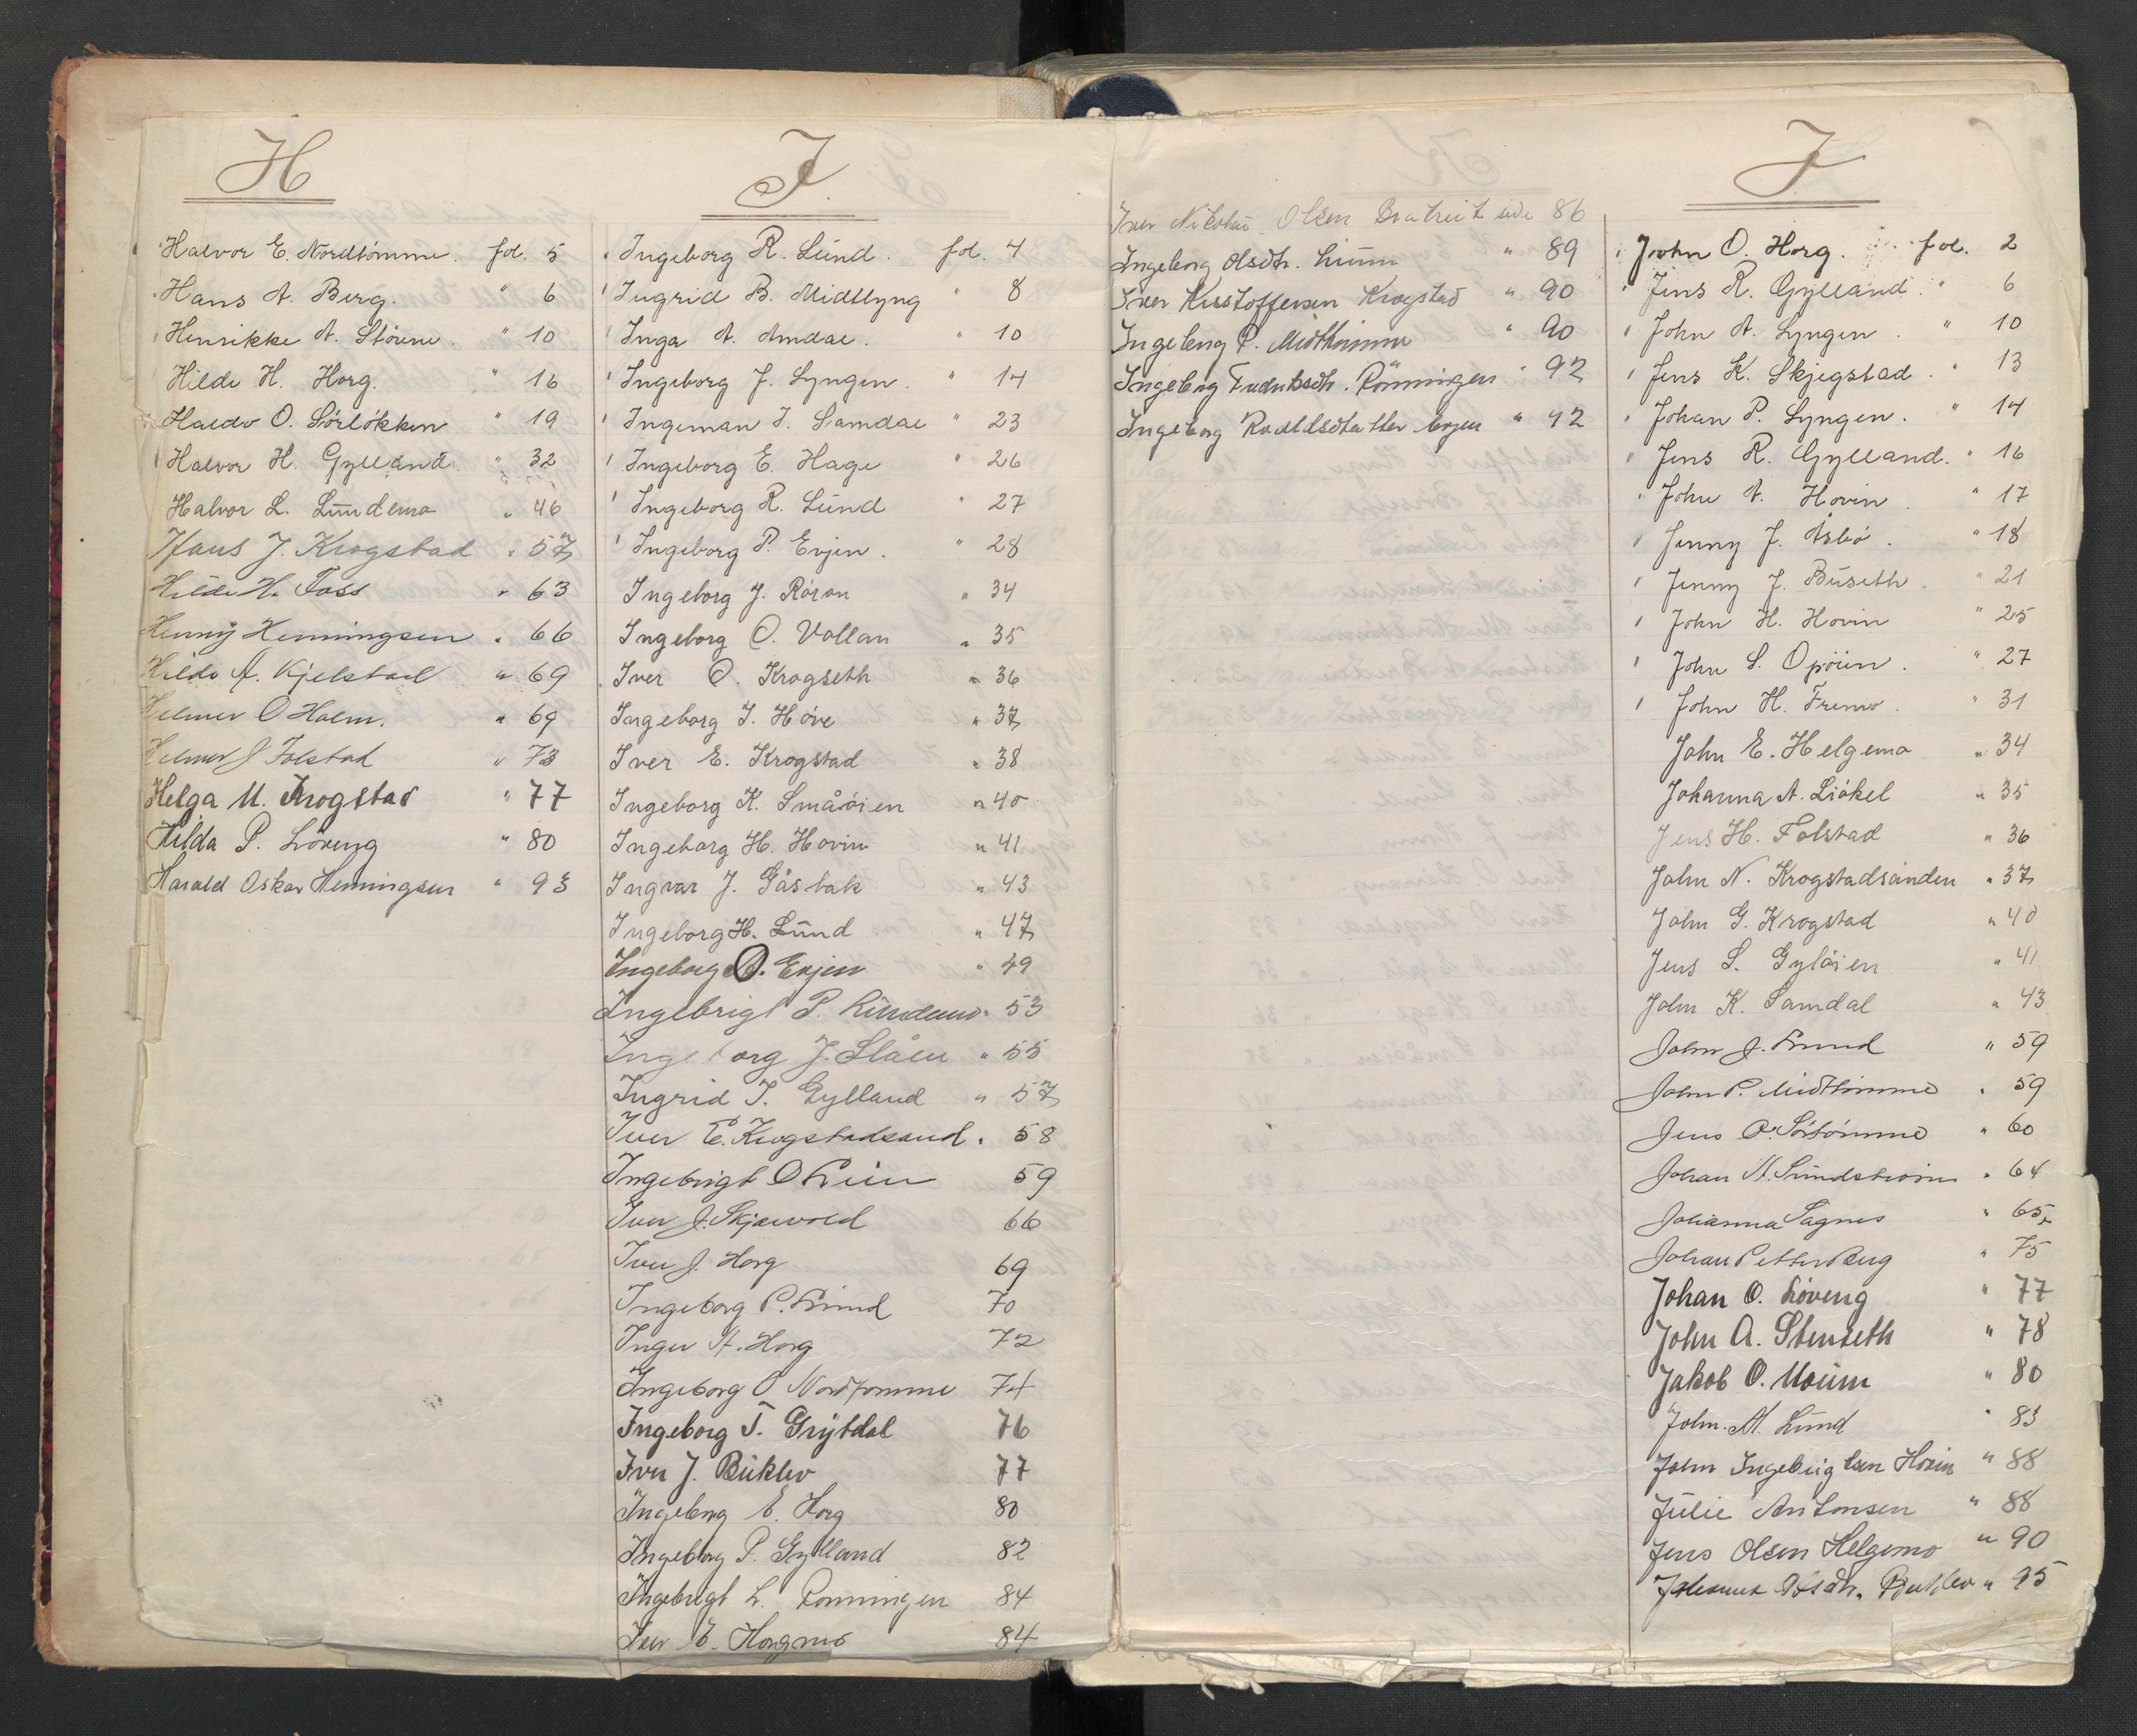 H
Halvor E. Nordtømme. fol. 5
Hans A. Berg. " 6
Henrikke A. Störene. " 10
Hilde H. Horg. " 16
Haldo O. Sörlökken " 19
Halvor H. Gylland. " 32
Halvor L. Lundemo " 46
Hans J. Krogstad " 57
Hilde H. Foss " 63
Henny Henningsen " 66
Hilda A. Kjelstad " 69
Helmer O Holm. " 69
Helmer J Folstad " 73
Helga M. Krogstad " 77
Hilda P. Löveng " 80
Harald Oskar Henningsen " 93
I.
Ingeborg R. Lund. fol. 4
Ingrid B. Midtlyng " 8
Inga A. Amdal. " 10
Ingeborg J. Lyngen. " 14
Ingeman I. Samdal " 23
Ingeborg E. Hage " 26
Ingeborg R. Lund " 27
Ingeborg P. Evjen. " 28
Ingeborg J. Röron " 34
Ingeborg O. Vollan " 35
Iver O. Krogseth " 36
Ingeborg I. Hove " 37
Iver E. Krogstad " 38
Ingeborg K. Småöien " 40
Ingeborg H. Hovin " 41
Ingvar J. Gåsbak " 43
Ingeborg H. Lund " 47
Ingeborg O. Evjen " 49
Ingebrigt P. Lundemo " 53
Ingeborg J. Slåen " 55
Ingrid I. Gylland " 57
Iver E. Krogstadsand " 58
Ingebrigt O 59
Iver J. Skjervold 66
Iver J. Horg 69
Ingeborg P. Lund 70
Inger A. Horg 72
Ingeborg O Nordtömme 74
Ingeborg T. Grytdal 76
Iver J. Buklev 77
Ingeborg E. Horg 80
Ingeborg P. Gylland 82
Ingebrigt L. Rönningen 84
Iver E. Horgmo 84
Iver Nikolai Olsen side 86
Ingeborg Olsdtr. " 89
Iver Kristoffersen Krogstad " 90
Ingeborg P. Midttömme " 90
Ingeborg Fredriksdtr. Rönningen " 92
Ingeborg Evjen " 92
J
John O. Horg. fol. 2
Jens R. Gylland. " 6
John A. Lyngen. " 10
Jens K. Skjegstad. " 13
Johan P. Lyngen. " 14
Jens R. Gylland. " 16
John A. Hovin. " 17
Jenny J. Åsbö. " 18
Jenny J. Buseth. " 21
John H. Hovin " 25
John L. Opöien. " 27
John H. Fremo. " 31
John E. Helgemo " 34
Johanna A. Liökel " 35
Jens H. Folstad " 36
John N. Krogstadsanden " 37
John G. Krogstad " 40
Jens L. Gylöien " 41
John K. Samdal " 43
John J. Lund " 59
John P. Midttömme " 59
Jens O. Sörtömme " 60
Johan A. Sundström " 64
Johanna Sagnes " 65
Johan Petter Berg " 75
Johan O. Löveng " 77
John A. Stenseth " 78
Jakob O. Moum " 80
John M. Lund " 83
John Ingebrigtsen Hovin " 88
Julie Antonsen " 88
Jens Olsen Helgemo " 90
Olsdtr. Buklev " 95